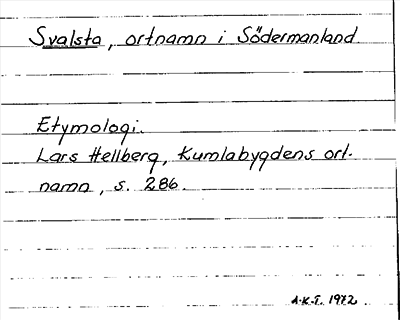 Svalsta, ortnamn i Södermanland
Etymologi.
Lars Hellberg, Kumlabygdens ort-
namn, s. 286.
A.K.T. 1972